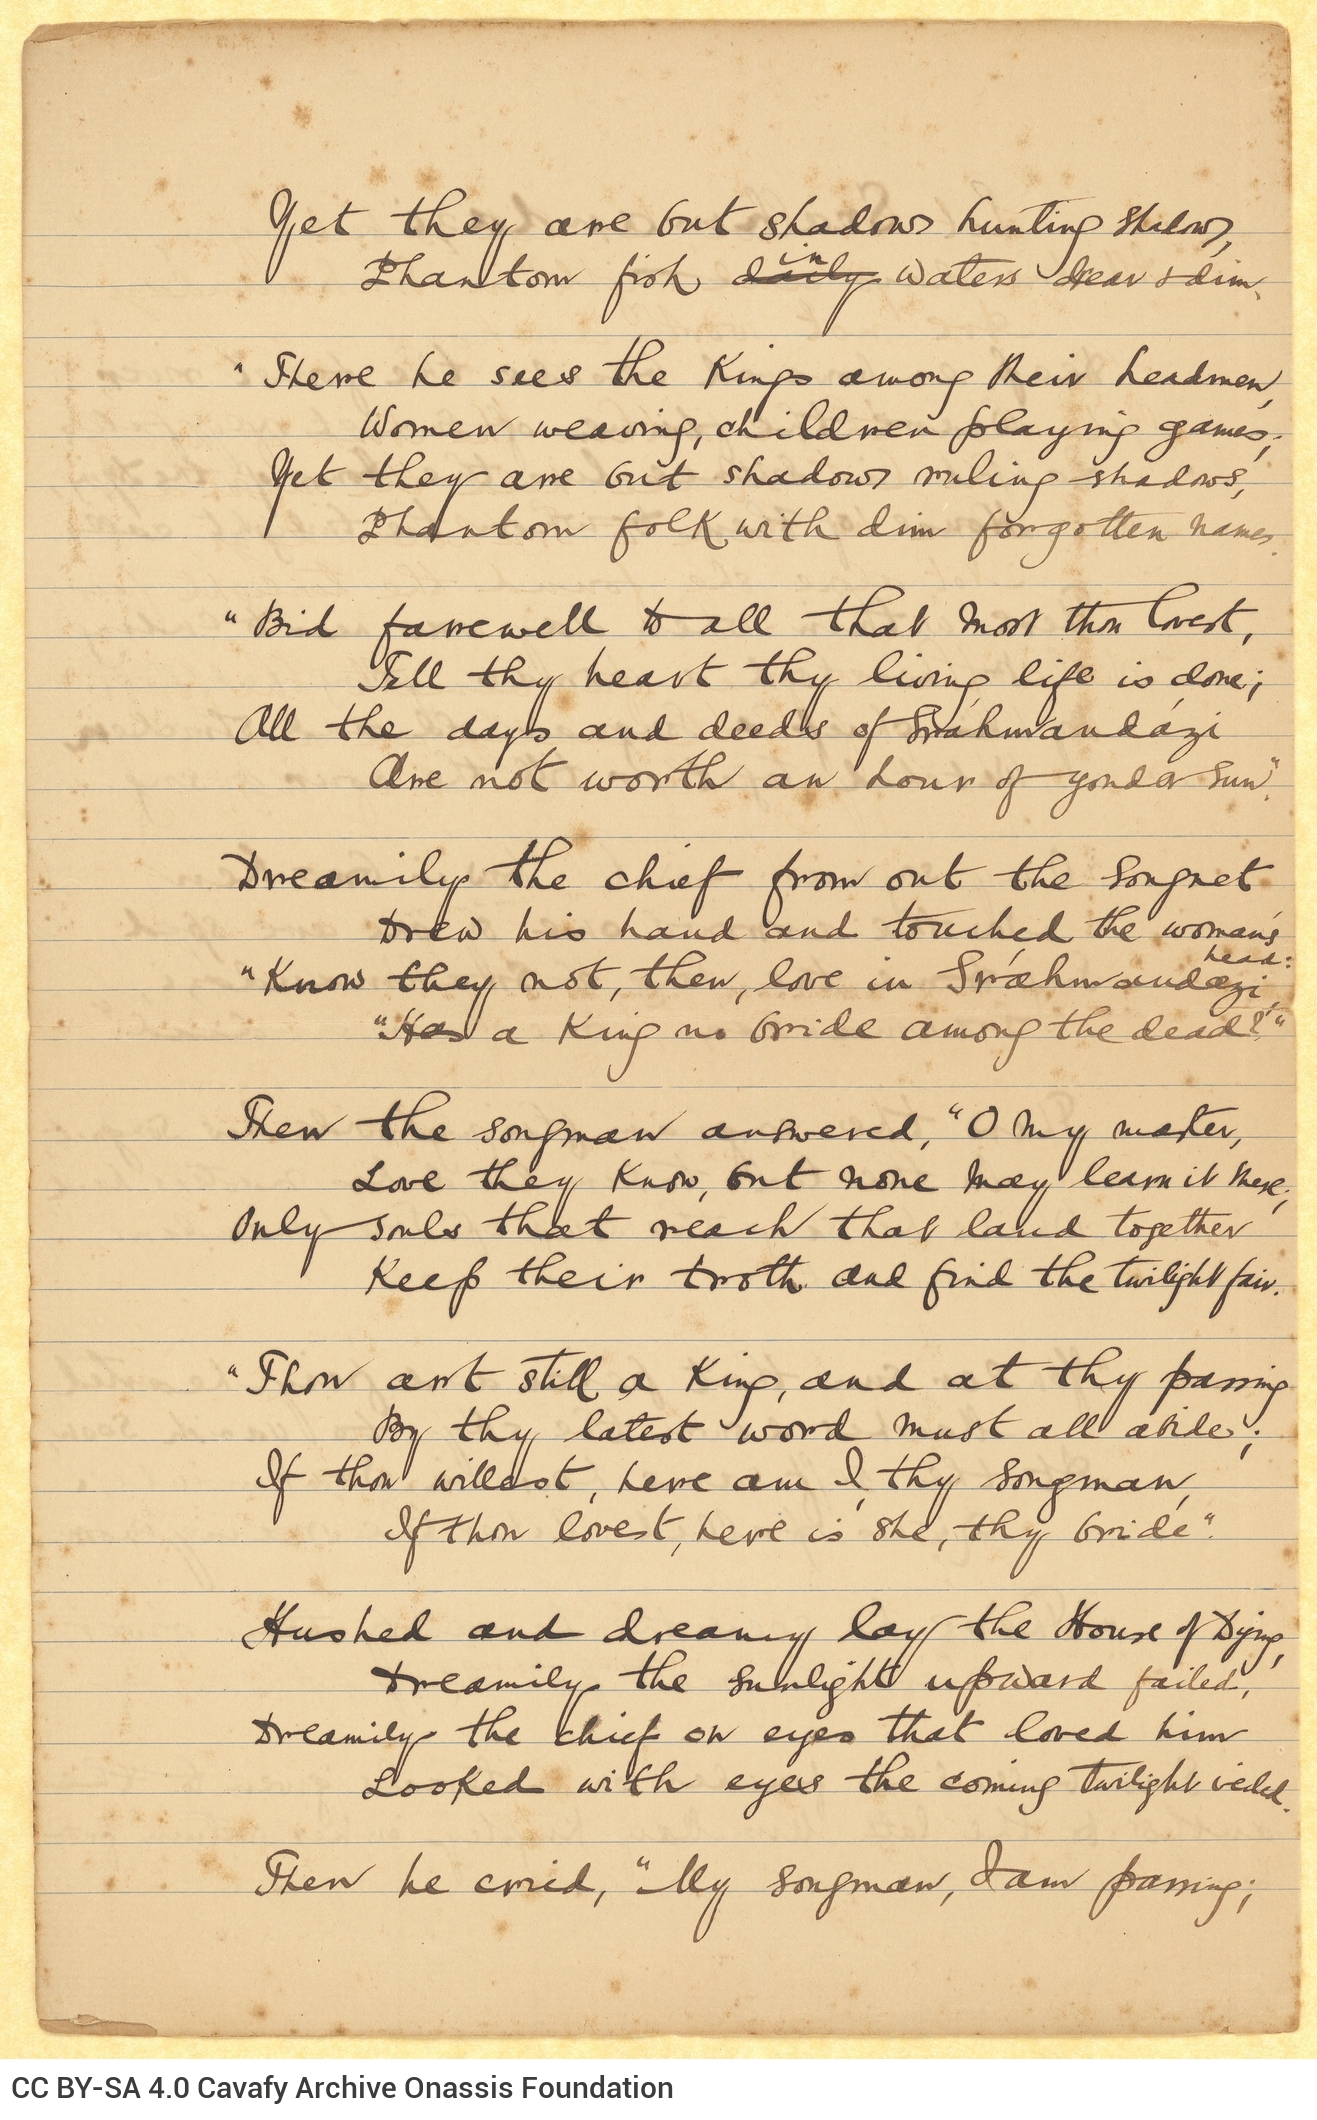 Yet they are but shadows hunting shadows,
Phantom fish in daily waters drear & dim.
"There he sees the Kings among their headmen,
Women weaving, children playing games;
Yet they are but shadows ruling shadows,
Phantom folk with dim forgotten names.
"Bid farewell to all that most thou lovest,
Tell thy heart thy living life is done;
All the days and deeds of Sráhmandázi
Are not worth an hour of yonder sun".
Dreamily the chief from out the songnet
Drew his hand and touched the woman's head:
"Know they not, then, love in Sráhmandazi,
"Has a King no bride among the dead?"
Then the songman answered, "O my master,
Love they know, but none may learn it there;
Only souls that reach that land together
Keep their troth and find the twilight fair.
"Thou art still a King, and at thy passing
By thy latest word must all abide;
If thou willest, here am I, thy songman,
If thou lovest, here is she, thy bride".
Hushed and dreamy lay the House of Dying,
Dreamily the sunlight upward failed,
Dreamily the chief on eyes that loved him
Looked with eyes the coming twilight veiled.
Then he cried, "My songman, I am passing;
CC BY-SA 4.0 Cavafy Archive Onassis Foundation